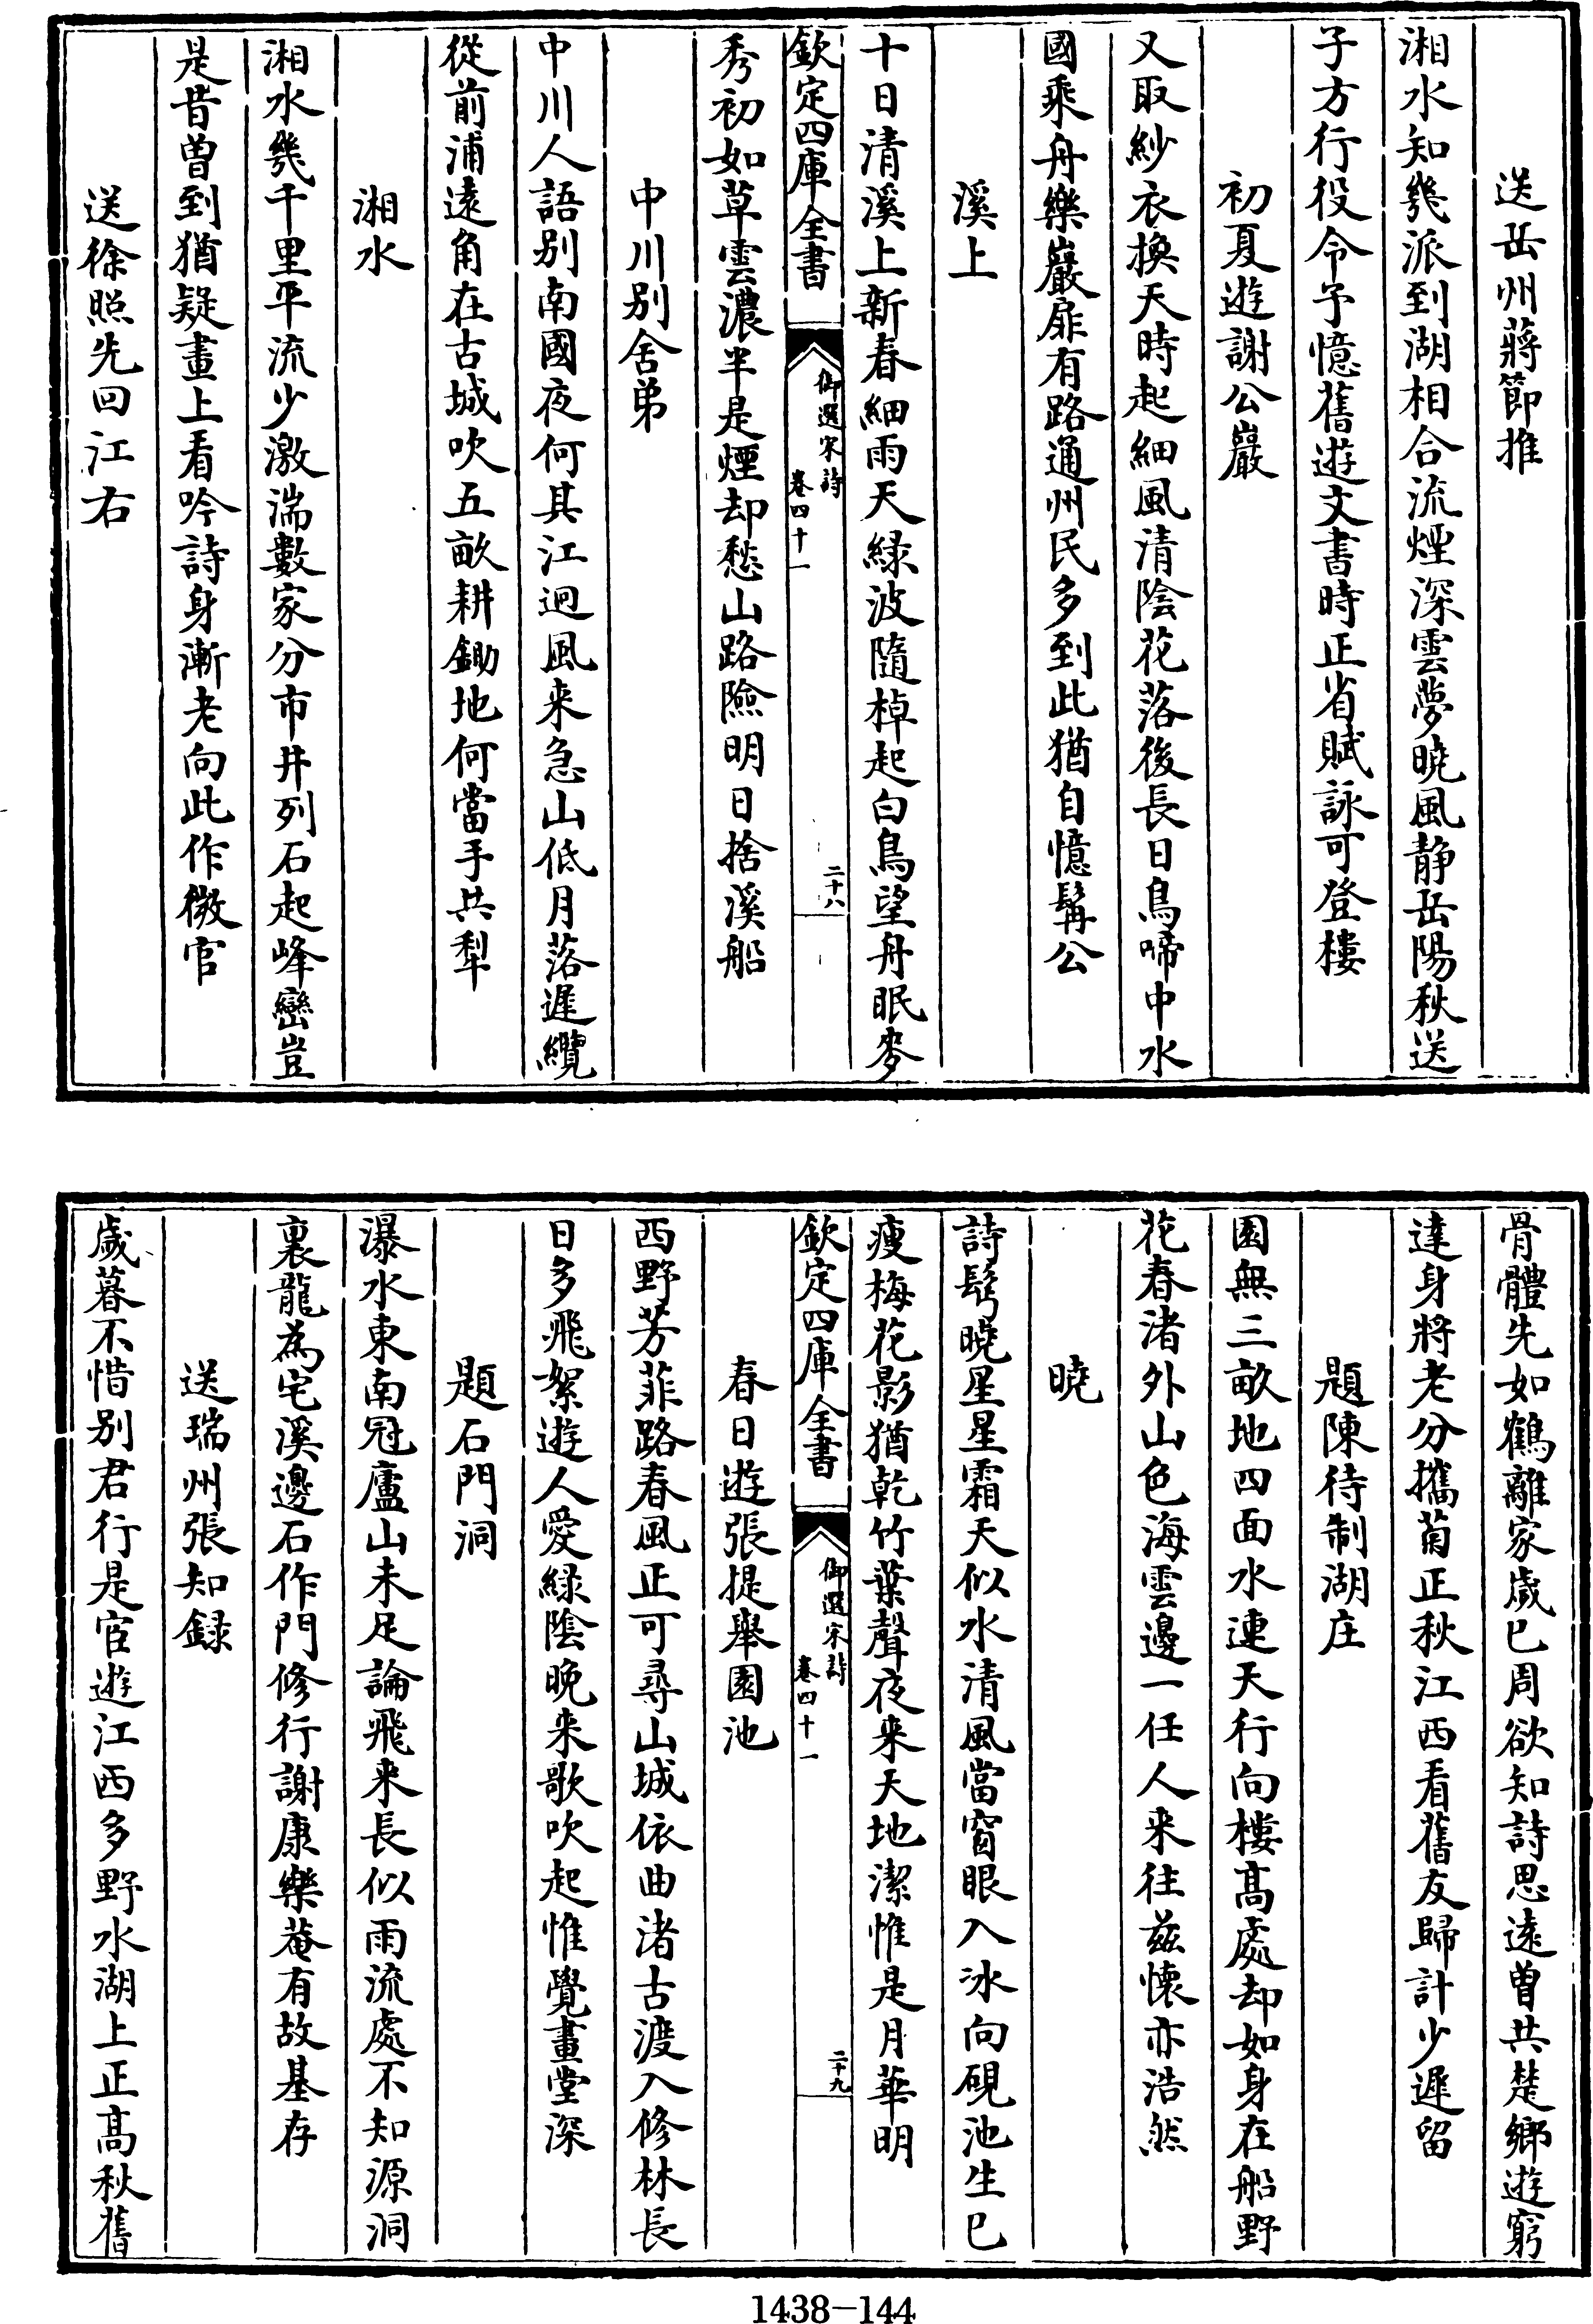 送岳州蔣節推
湘水知幾派到湖相合流煙深雲夢曉風静岳陽秋送
子方行役令予憶舊遊文書時正省賦詠可登樓
初夏遊謝公巖
又取紗衣換天時起細風清陰花落後長日鳥啼中水
國乘舟樂巖扉有路通州民多到此猶自憶髯公
溪上
十日清溪上新春細雨天緑波隨棹起白鳥望舟眠麥
欽定四庫全書
御選宋詩
卷四十一
二十八
秀初如草雲濃半是煙却愁山路險明日捨溪船
中川别舍弟
中川人語别南國夜何其江迥風来急山低月落遲纜
從前浦遠角在古城吹五畝耕鋤地何當手共犁
湘水
湘水幾千里平流少激湍數家分市井列石起峰巒豈
是昔曾到猶疑畫上看吟詩身漸老向此作微官
送徐照先回江右
骨體先如鶴離家歲已周欲知詩思遠曾共楚鄉遊窮
達身將老分攜菊正秋江西看舊友歸計少遲留
題陳待制湖庄
園無三畝地四面水連天行向樓髙處却如身在船野
花春渚外山色海雲邊一任人来往兹懷亦浩然
曉
詩髩曉星星霜天似水清風當窗眼入冰向硯池生已
瘦梅花影猶乾竹葉聲夜来天地潔惟是月華明
欽定四庫全書
御選宋詩
卷四十一
二十九
春日遊張提舉園池
西野芳菲路春風正可尋山城依曲渚古渡入修林長
日多飛絮遊人愛緑陰晚来歌吹起惟覺畫堂深
題石門洞
瀑水東南冠廬山未足論飛来長似雨流處不知源洞
裏龍為宅溪邊石作門修行謝康樂菴有故基存
送瑞州張知録
歲暮不惜别君行是宦遊江西多野水湖上正髙秋舊
1438-144